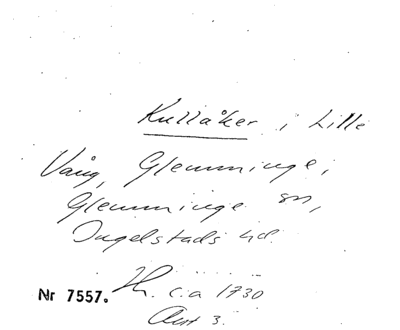 Kullåker i Lille
Vång, Glemminge,
Glemminge sn,
Ingelstads hd.
Nr 7557. c:a 1730
3.